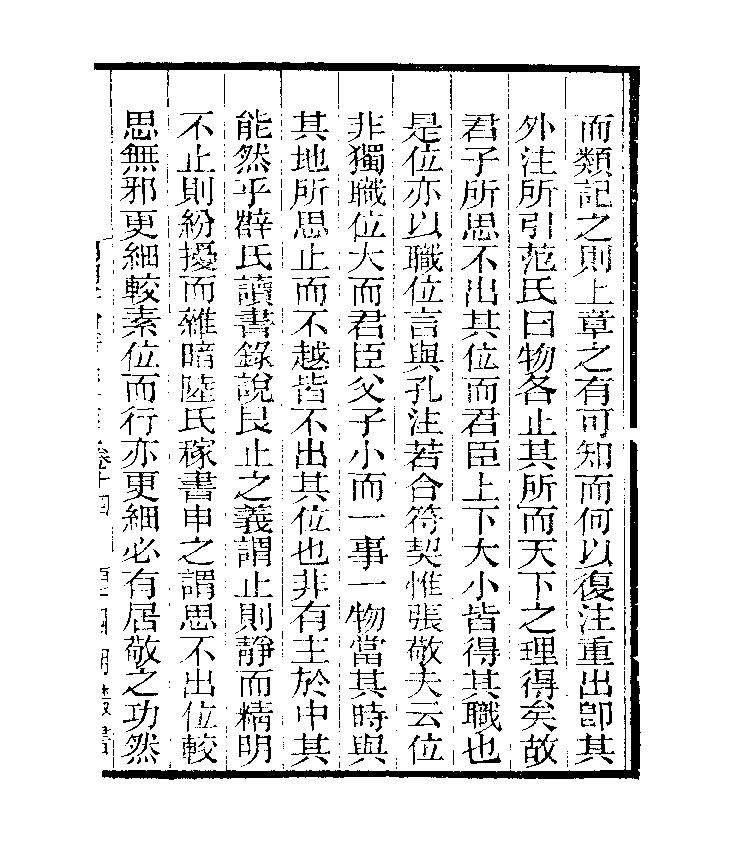 而類記之則上章之有可知而何以復注重出卽其
外注所引范氏曰物各止其所而天下之理得矣故
君子所思不出其位而君臣上下大小皆得其職也
是位亦以職位言與孔注若合符契惟張敬夫云位
非獨職位大而君臣父子小而一事一物當其時與
其地所思止而不越皆不出其位也非有主於中其
能然乎薛氏讀書錄說艮止之義謂止則靜而精明
不止則紛擾而雜暗陸氏稼書申之謂思不出位較
思無邪更細較素位而行亦更細必有居敬之功然
卷十四